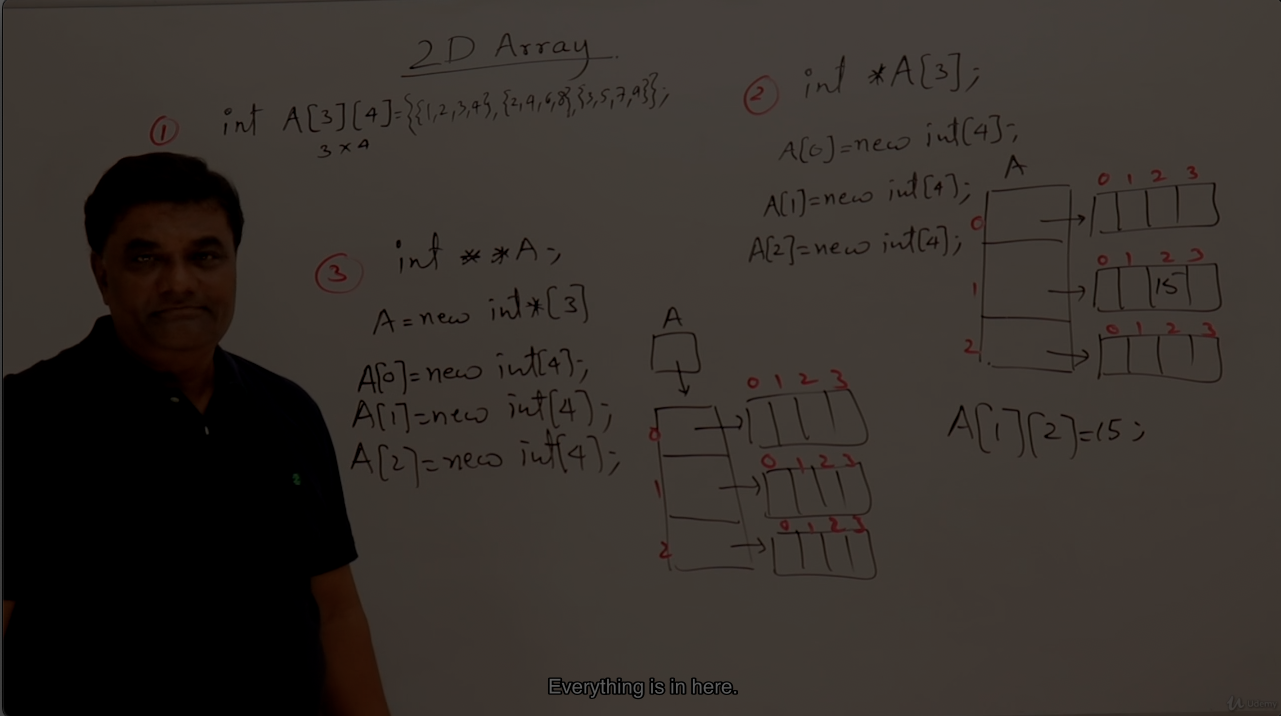 2D Array
① int A[3][4]={{1,2,3,4},{2,4,6,8},{3,5,7,9}};
3×4
② int *A[3];
A[0]=new int[4];
A[1]=new int[4];
A[2]=new int[4];
A
0 1 2 3
0
0 1 2 3
1
15
0 1 2 3
2
A[1][2]=15;
③ int **A;
A=new int*[3]
A[0]=new int[4];
A[1]=new int[4];
A[2]=new int[4];
A
0 1 2 3
0
0 1 2 3
1
0 1 2 3
2
Everything is in here.
Udemy